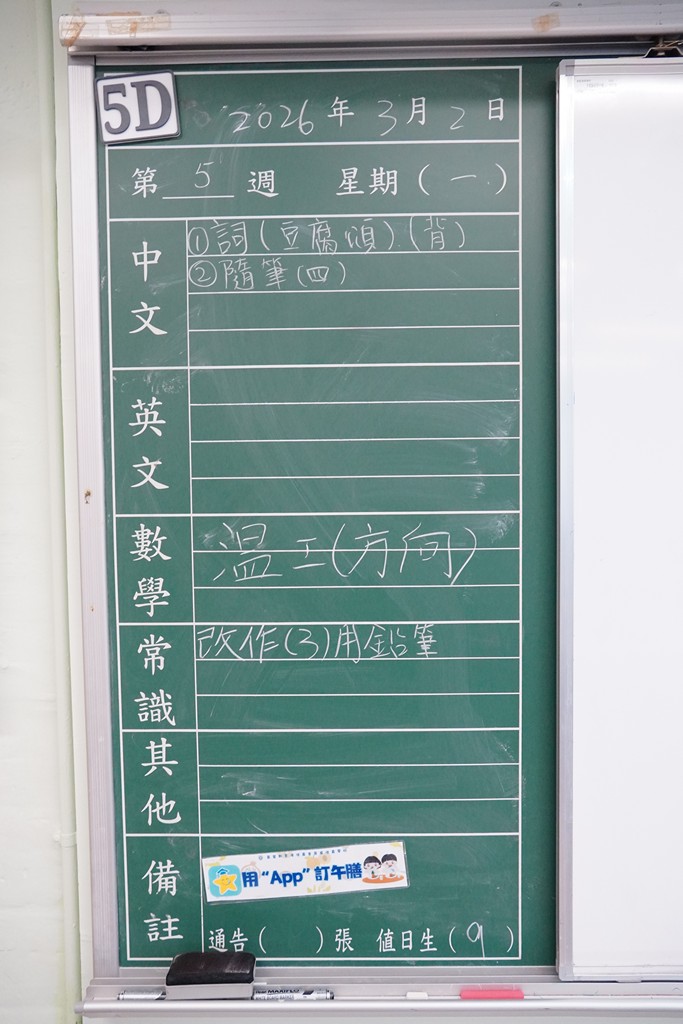 5D
2026年3月2日
第5週 星期(一)
中文
①詞(豆腐頌)(背)
②隨筆(四)
英文
數學
溫工(方向)
常識
改作(3)用鉛筆
其他
備註
用“App”訂午膳
通告( )張 值日生(9)